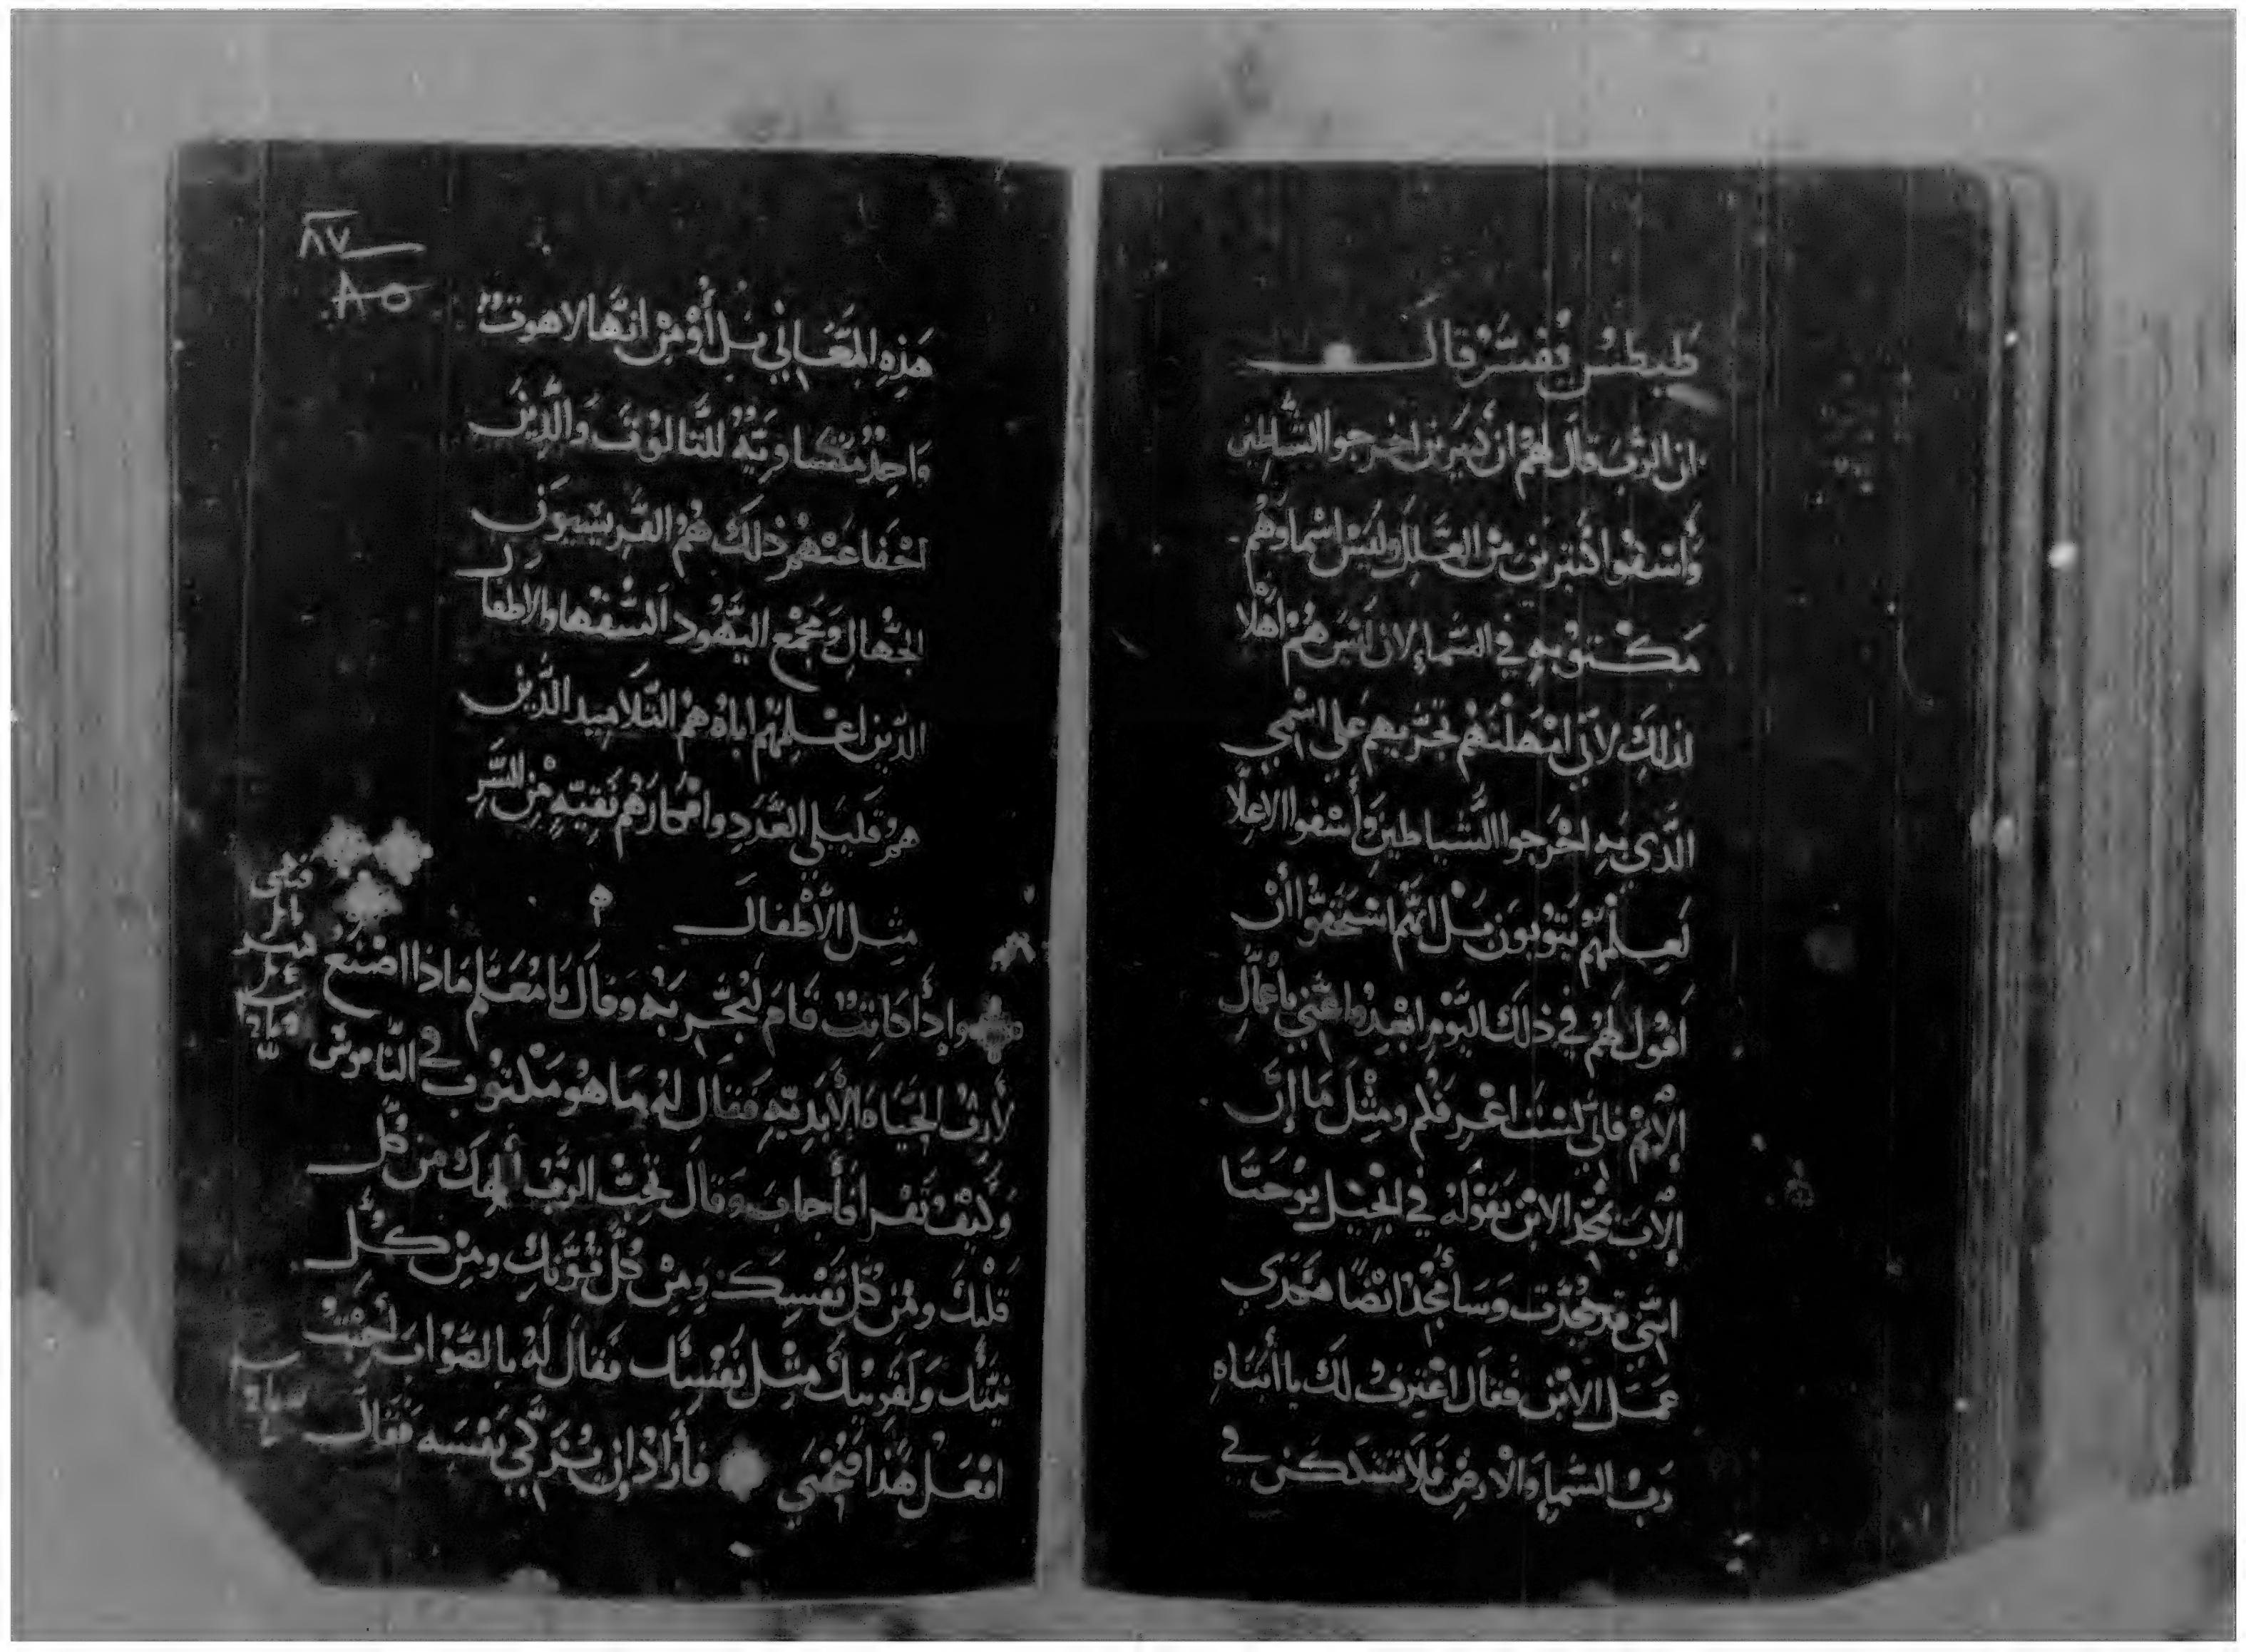 طيطس يفسر قال
ان الرب قال لهم ان كثيرين اخرجوا الشياطين
وأشفوا كثيرين من العلل وليس اسماوهم
مكتوبه في السماء لان ليس هم اهلا
لذلك لاني امهلتهم تجربهم على اسمي
الذي به اخرجوا الشياطين وأشفوا الاعلا
لعلهم يتوبون بل انهم استحقوا أن
اقول لهم في ذلك اليوم ابعدوا عني يا عمال
الإثم فاني لست اعرفكم ومثل ما إن
الاب يمجد الابن بقوله في انجيل يوحنا
انني قد مجدت وسأمجد ايضا
عمل الابن فقال اعترف لك يا أبتاه
رب السماء والأرض فلا تتشكك في
٨٧
٨٥
هذه المعاني بل أومن انها لاهوت
واحد متساويه للثالوث والذين
اخفا عنهم ذلك هم الفريسيون
الجهال ومجمع اليهود السفها والاطفال
الذين اعلمهم اياه هم التلاميد الذين
هم قليلي العدد وافكارهم نقيه من الشر
مثل الأطفال
وإذا كاتب قام ليجربه وقال يا معلم ماذا اصنع
لأرث الحياه الأبديه فقال له ما هو مكتوب في الناموس
وكيف تقرا فأجاب وقال تحب الرب ألهك من كل
قلبك ومن كل نفسك ومن كل قوتك ومن كل
نيتك ولقريبك مثل نفسك فقال له بالصواب أجبت
افعل هذا فتحيي فأراد ان يزكي نفسه فقال